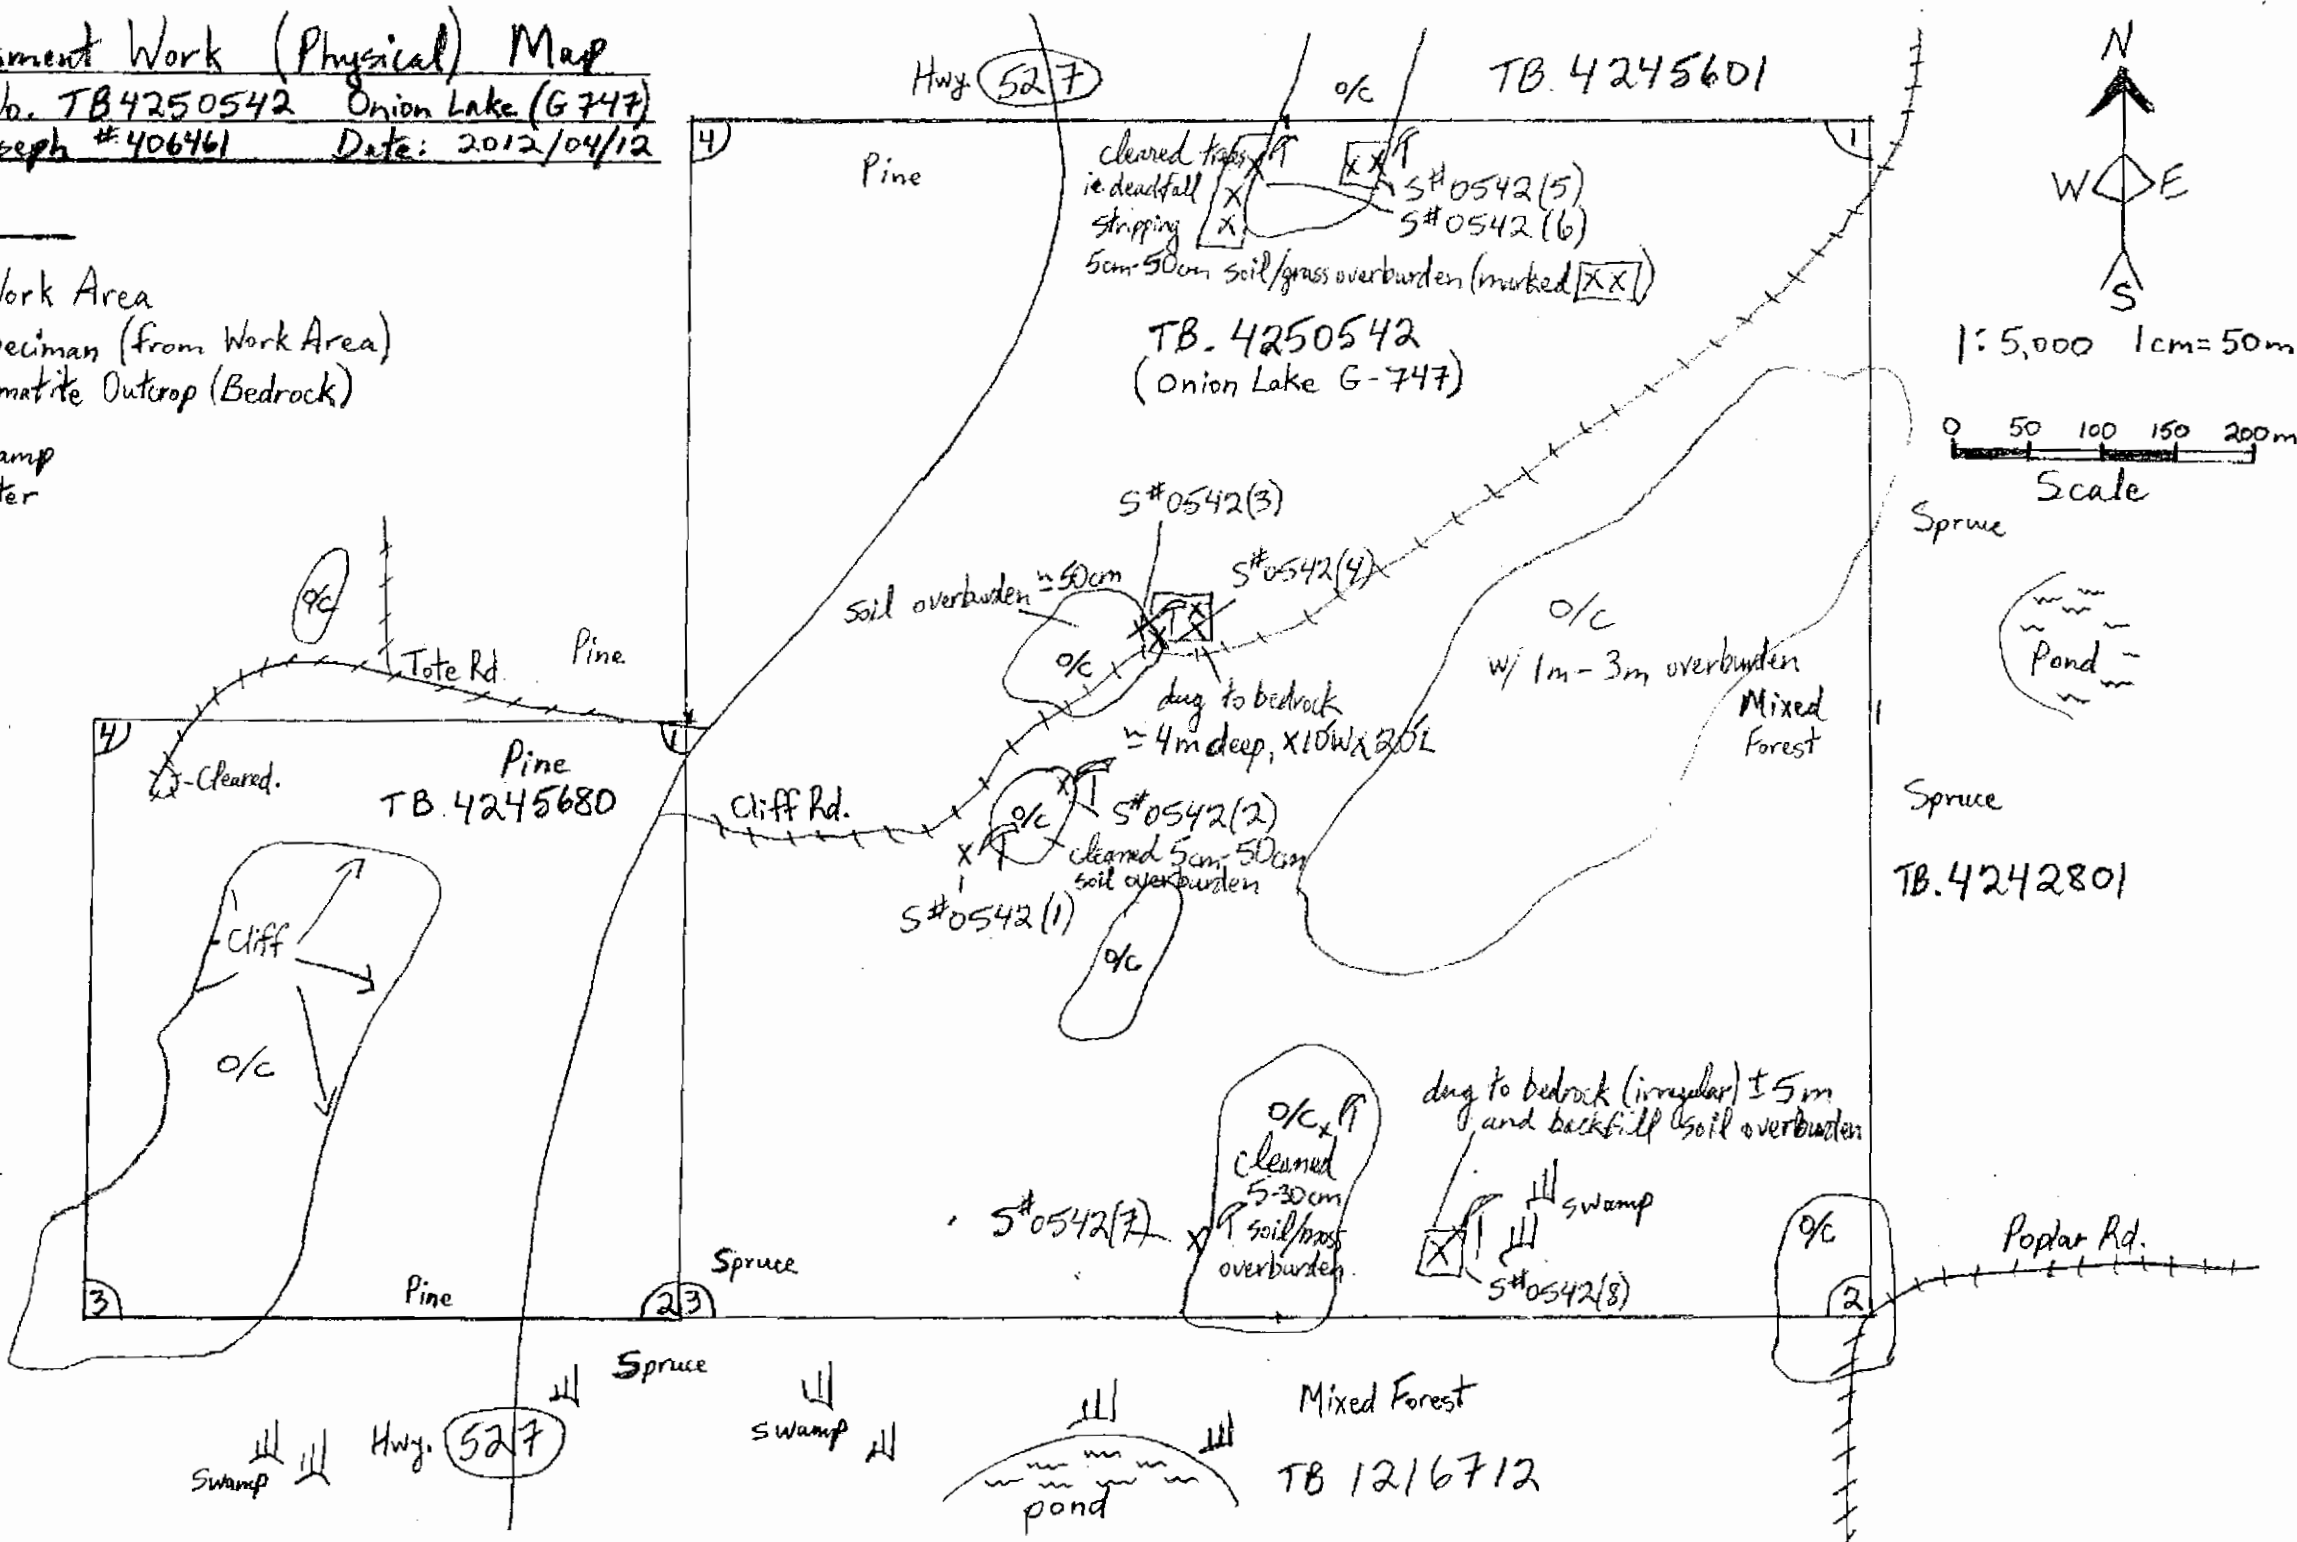 ment Work (Physical) Map
o. TB4250542 Onion Lake (G747)
seph #406461 Date: 2012/04/12
Work Area
eciman (from Work Area)
matite Outcrop (Bedrock)
amp
ter
Hwy. 527
o/c
TB. 4245601
N
W E
S
1:5,000 1cm=50m
0 50 100 150 200m
Scale
4
1
Pine
cleared trees
ie. deadfall
stripping
5cm-50cm soil/grass overburden (marked XX)
X X
X
X
X
S#0542(5)
S#0542(6)
TB. 4250542
(Onion Lake G-747)
S#0542(3)
S#0542(4)
soil overburden ≈50cm
o/c
dug to bedrock
≈ 4m deep, x10'Wx20'L
o/c
w/ 1m-3m overburden
Mixed
Forest
Spruce
Pond
Spruce
TB. 4242801
o/c
Tote Rd.
Pine
4
1
-Cleared.
Pine
TB. 4245680
Cliff Rd.
o/c
X
S#0542(2)
cleaned 5cm-50cm
soil overburden
X
S#0542(1)
o/c
Cliff
o/c
o/c x
cleaned
5-30cm
soil/moss
overburden.
S#0542(7)
X
dug to bedrock (irregular) ±5m
and backfill soil overburden
swamp
X
S#0542(8)
o/c
Poplar Rd.
Spruce
3
Pine
2 3
2
Spruce
Swamp
Hwy. 527
swamp
pond
Mixed Forest
TB 1216712